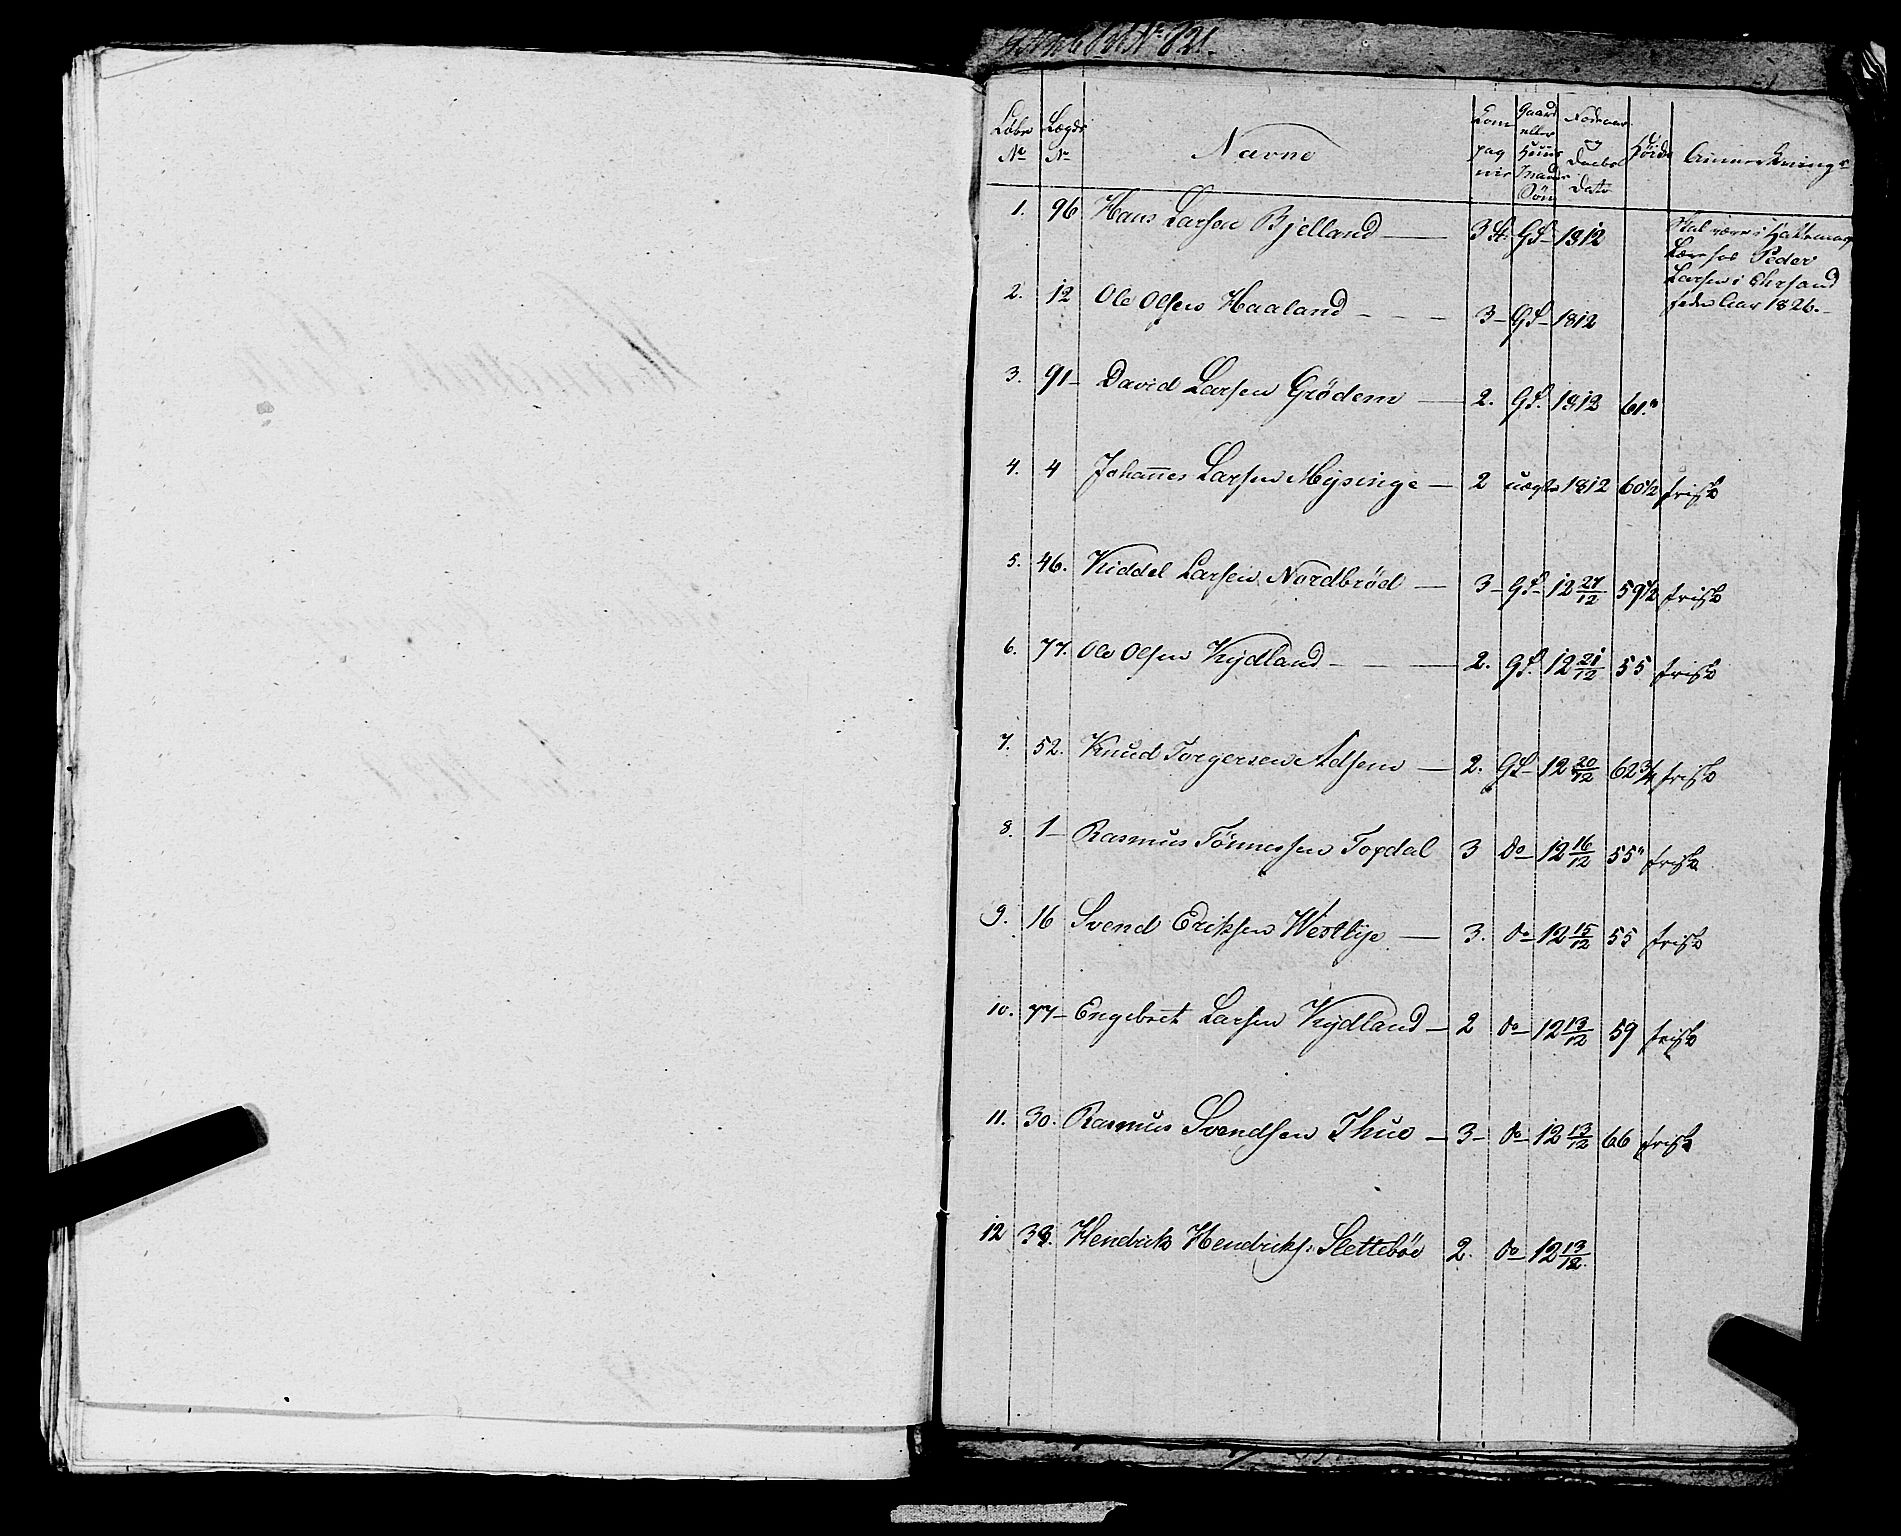 Nº 821.
Løbe Nº Lægds Nº Navne Com pag nie Gaard eller Huus Mands Søn Fødeaar og Daabs Dato Høide Anmerkning
1. 96 Hans Larsen Bjelland — 3 GS– 1812 Skal være i
Lære hos Peder
Larsen i Chrsand
siden Aar 1826.
2. 12 Ole Olsen Haaland – – – 3– GS– 1812
3. 91– David Larsen Grödem — 2. GS. 1812 61."
4. 4 Johannes Larsen Mysinge — 2 uægte 1812 60½ frisk
5. 46. Kiddel Larsen Nordbröd — 3– GS– 12 27/12 59½ frisk
6. 77. Ole Olsen Kydland – — 2. GS. 12 21/12 55 frisk
7. 52. Knud Torgersen Adsem — 2. GS– 12 20/12 62¾ frisk
8. 1– Rasmus Tönnessen Topdal 3 Do– 12 16/12 55" frisk
9. 16 Svend Eriksen Westbye — 3. Do– 12 15/12 55 frisk
10. 77– Engebret Larsen Kydland – 2 Do– 12 13/12 59 frisk
11. 30. Rasmus Svendsen Thue – 3– Do– 12 13/12 66 frisk
12 38. Hendrik Hendriks: Sletteböe 2. Do– 12 13/12.